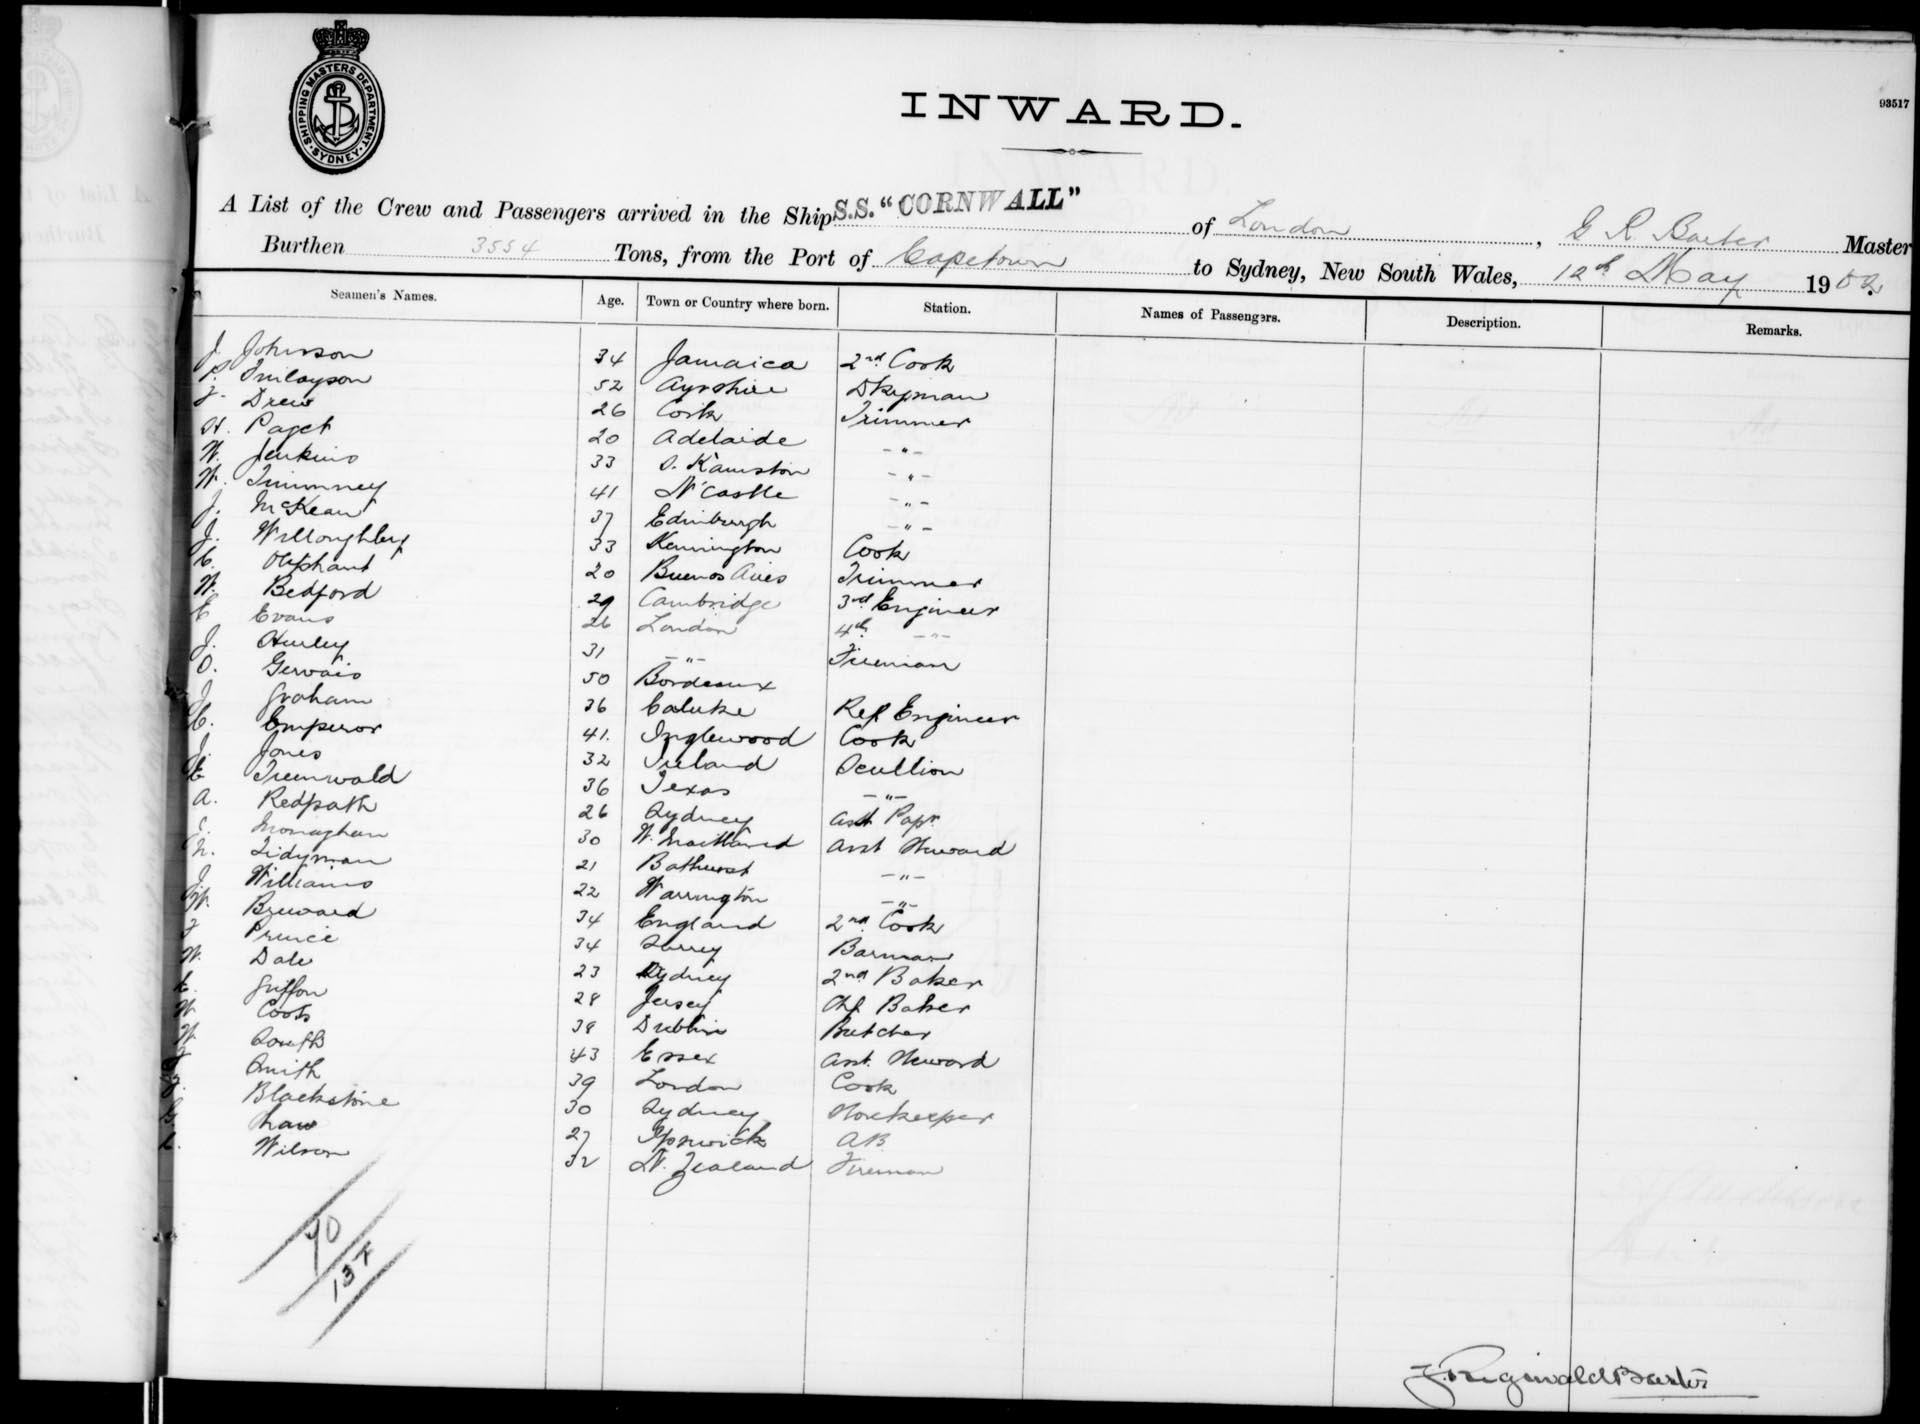 SHIPPING MASTERS DEPARTMENT. SYDNEY.
93517
INWARD.
A List of the Crew and Passengers arrived in the Ship S.S. "CORNWALL" of London, G R Baxter Master
Burthen 3554 Tons, from the Port of Capetown to Sydney, New South Wales, 12th May 1902.
Seamen's Names. Age. Town or Country where born. Station. Names of Passengers. Description. Remarks.
J. Johnson 34 Jamaica 2nd Cook
Finlayson 52 Ayrshire Dkyman
J. Drew 26 Cork Trimmer
H. Paget 20 Adelaide -"-
W. Jenkins 33 -"-
W. Timmney 41 N'Castle -"-
J. McKean 37 Edinburgh -"-
J. Willoughby 33 Kennington Cook
C. Oliphant 20 Buenos Aires Trimmer
W. Bedford 29 Cambridge 3rd Engineer
E Evans 26 London 4th -"-
J. Hurley 31 -"- Fireman
O. Gervais 50 Bordeaux
J Graham 36 Caluke Ref Engineer
C. Emperor 41. Inglewood Cook
J. Jones 32 Ireland Scullion
E 36 Texas -"-
A. Redpath 26 Sydney
Monaghan 30 W. Maitland Asst Steward
N. Tidyman 21 Bathurst -"-
J Williams 22 Warrington -"-
Breward 34 England 2nd Cook
J Prince 34 Surrey Barman
W. Dale 23 Sydney 2nd Baker
C. Griffon 28 Jersey Chf Baker
W Cook 38 Dublin Butcher
W South 43 Essex Asst. Steward
J Smith 39 London Cook
J. Blackstone 30 Sydney Storekeeper
G. Shaw 27 Ipswich AB
C. Wilson 32 N. Zealand Fireman
137
Reginald Baxter